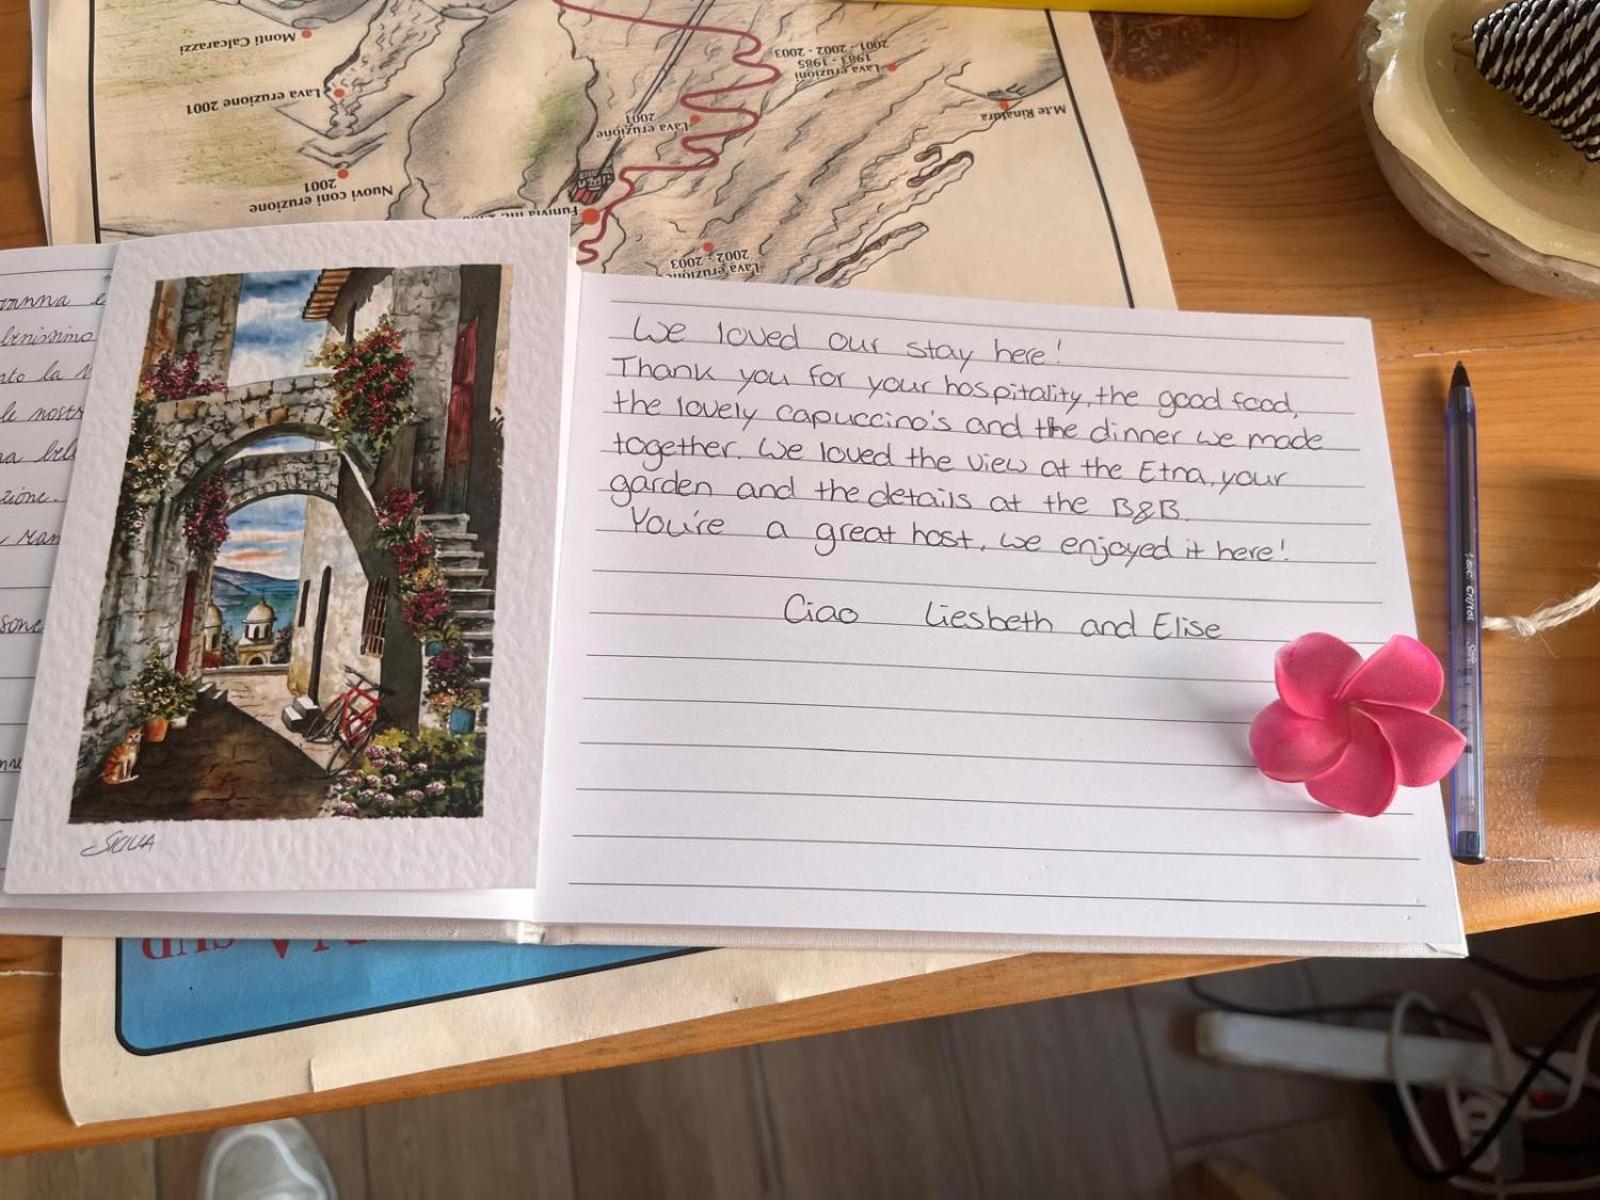 Monti Calcarazzi
Lava eruzione 2001
Nuovi coni eruzione
2001
Lava eruzione
2001
Lava eruzioni
1983 - 1985
2001 - 2002 - 2003
M.te Rinatura
Funivia
Lava eruzione
2002 - 2003
benissimo
la
bel
zione.
SICILIA
We loved our stay here!
Thank you for your hospitality, the good food,
the lovely capuccino's and the dinner we made
together. We loved the view at the Etna, your
garden and the details at the B&B.
You're a great host, we enjoyed it here!
Ciao Liesbeth and Elise
SUD